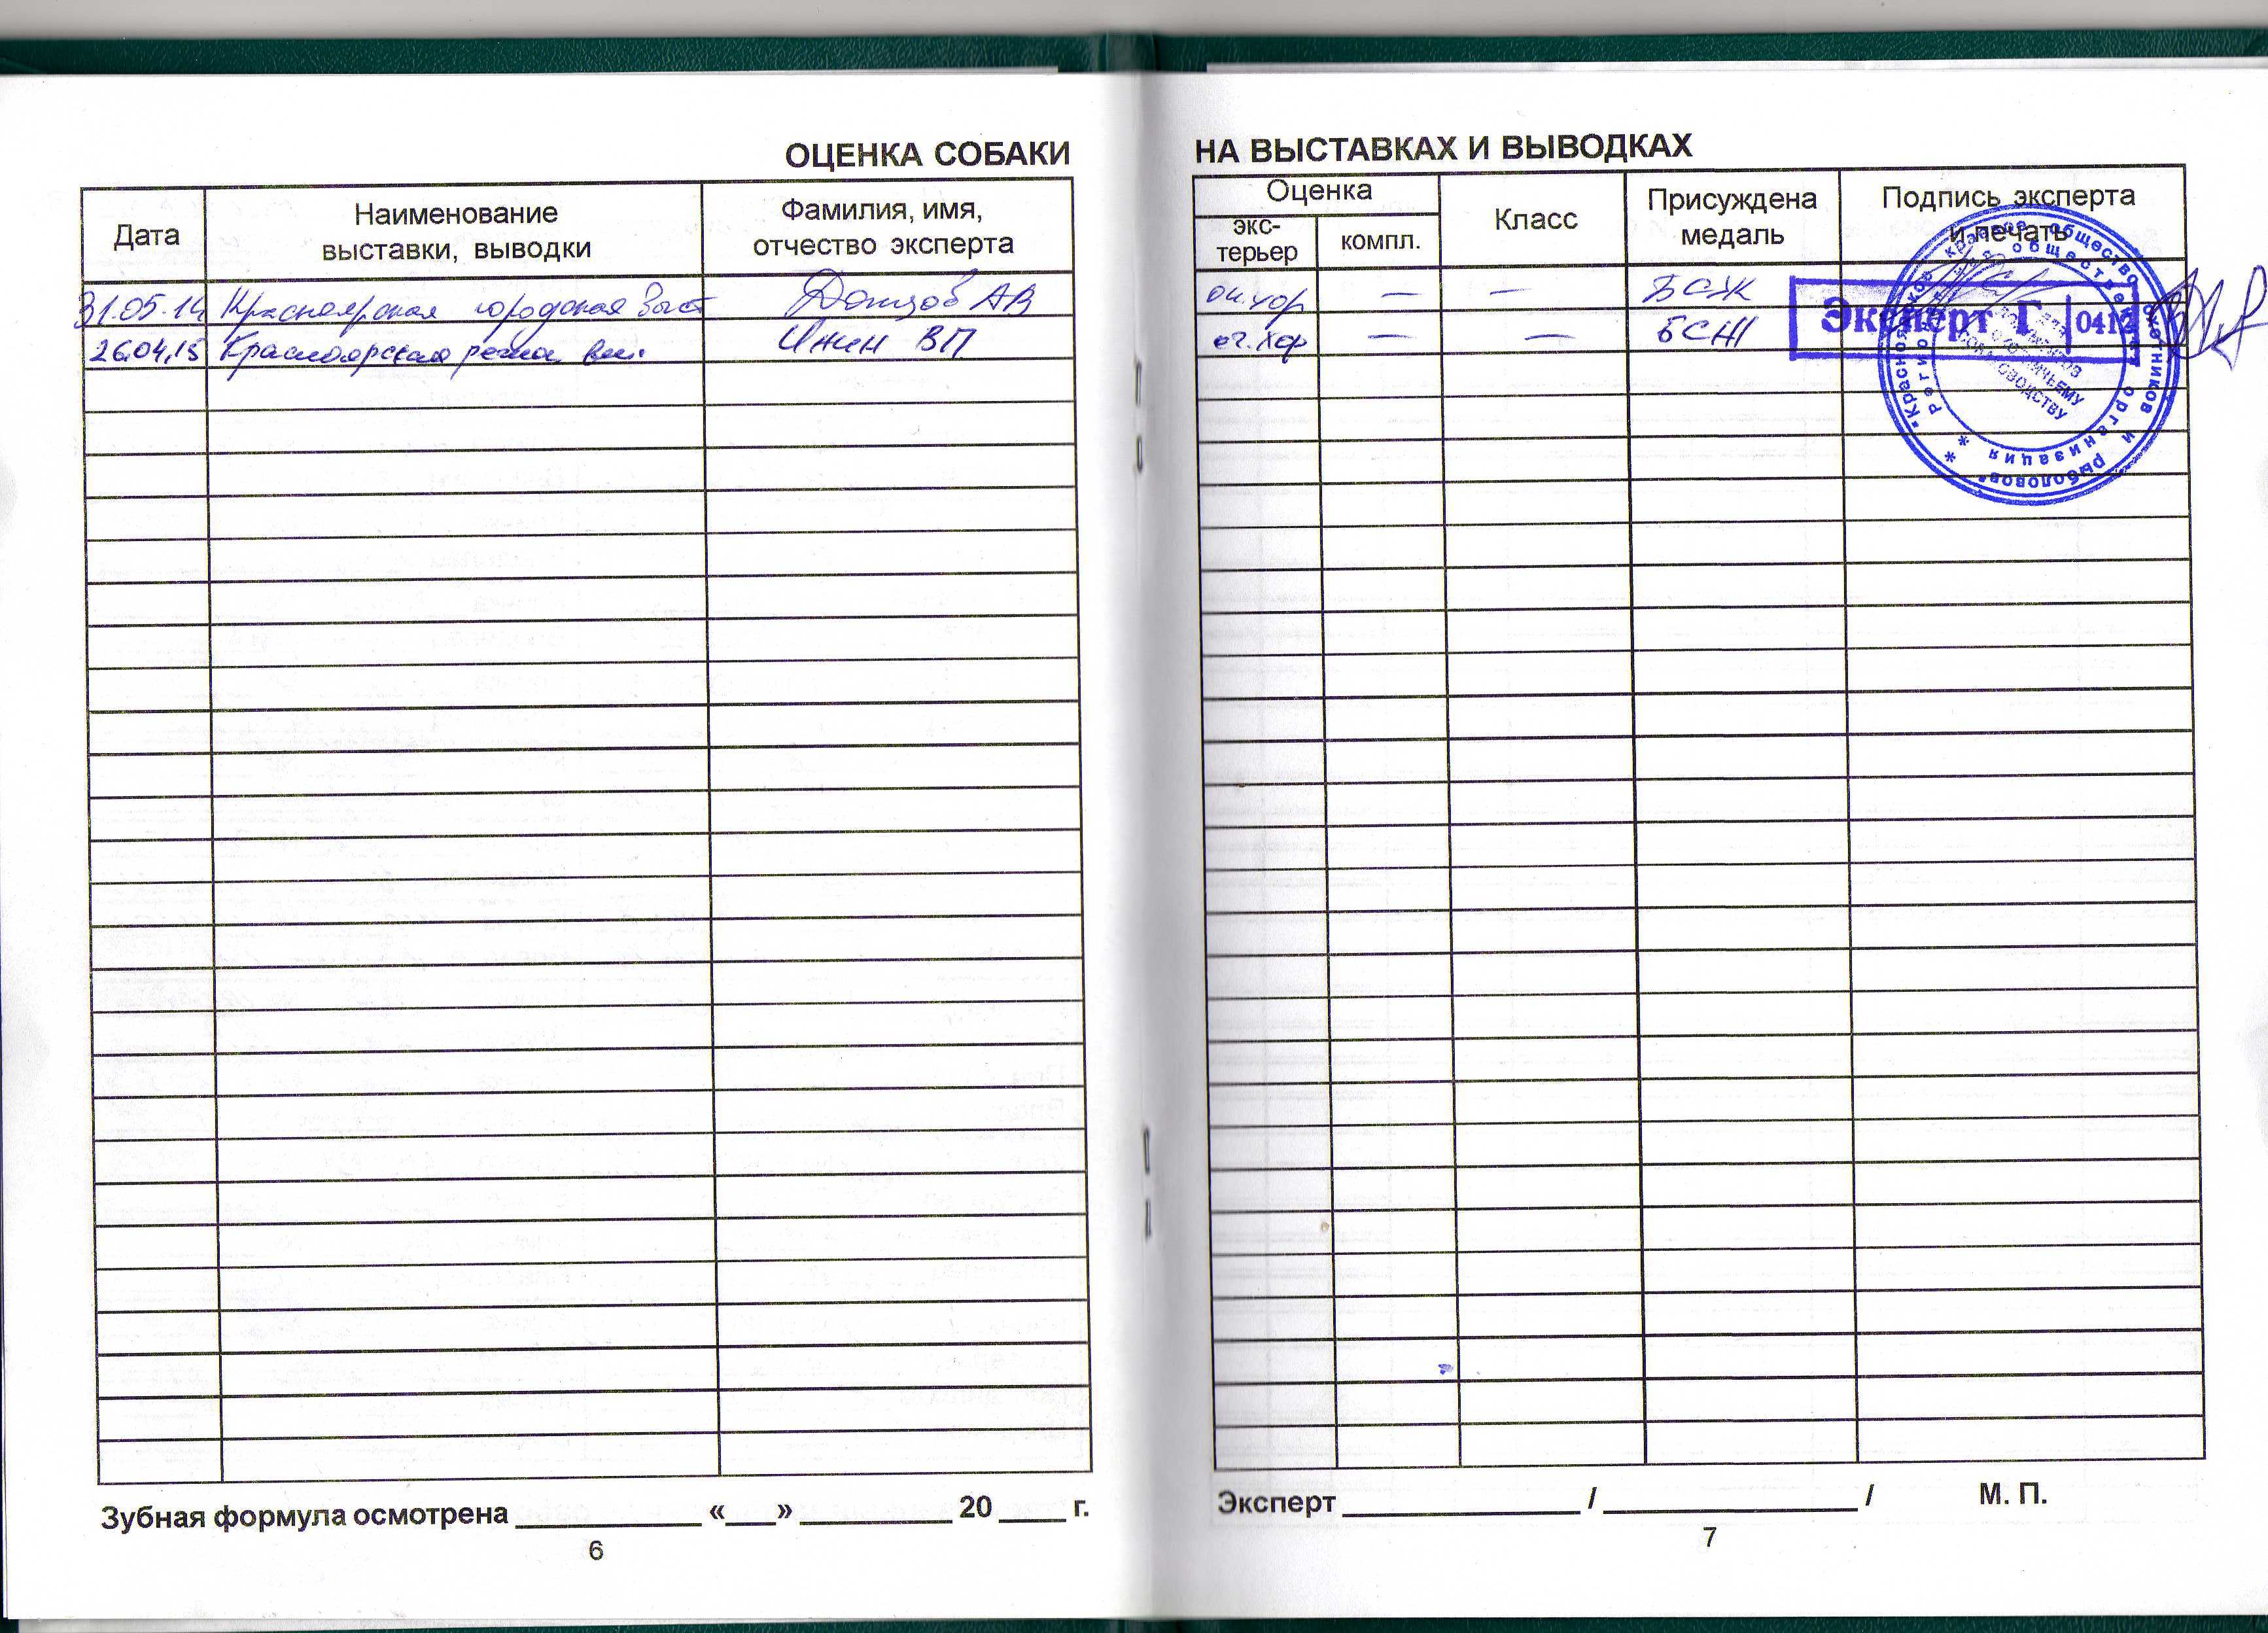 ОЦЕНКА СОБАКИ
Дата
Наименование
выставки, выводки
Фамилия, имя,
отчество эксперта
31.05.14 Красноярская городская выст Донцов АВ
26.04.15 Красноярская регион выс. Инин ВП
Зубная формула осмотрена ____________ «___» __________ 20 ____ г.
6
НА ВЫСТАВКАХ И ВЫВОДКАХ
Оценка
экс-
терьер
компл.
Класс
Присуждена
медаль
Подпись эксперта
и печать
оч.хор — — БСЖ
оч.хор — — БСЖ
Эксперт Г 0412
"Красноярское краевое общество охотников и рыболовов"
Региональная общественная организация
для документов
по охотничьему
собаководству
Эксперт _______________ / ________________ / М. П.
7